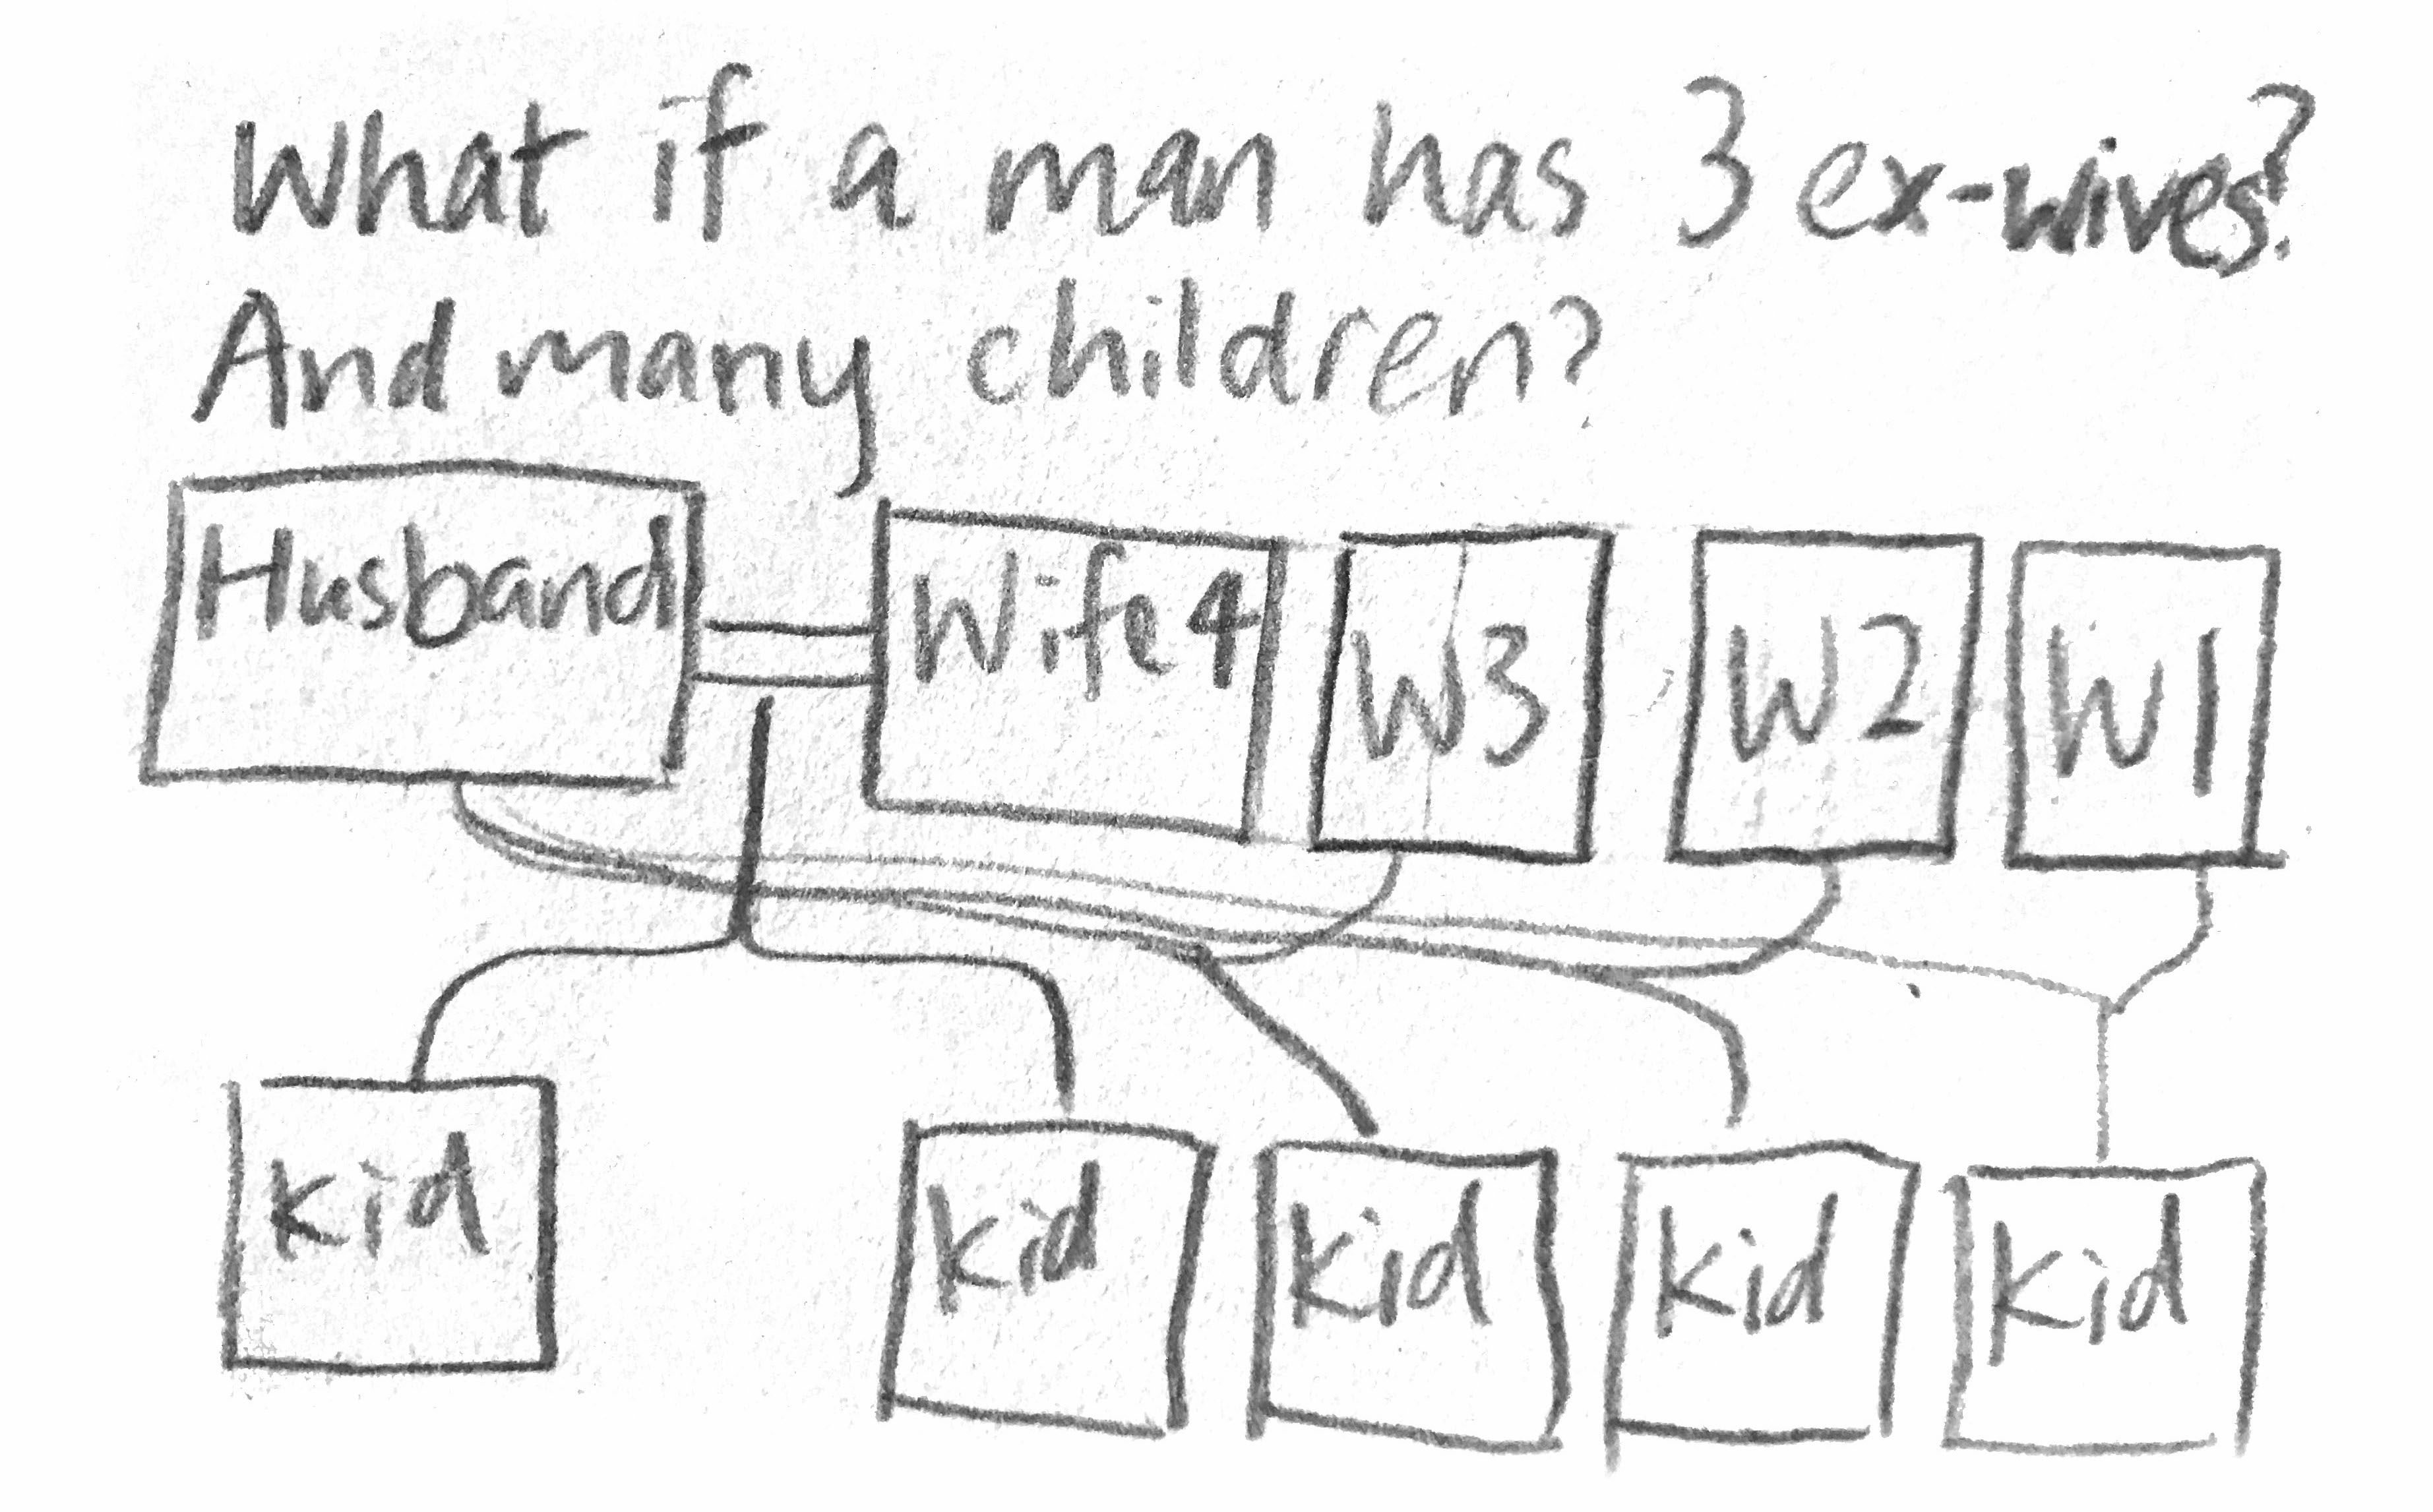 What if a man has 3 ex-wives?
And many children?
Husband
Wife 4
W3
W2
W1
Kid
Kid
Kid
Kid
Kid